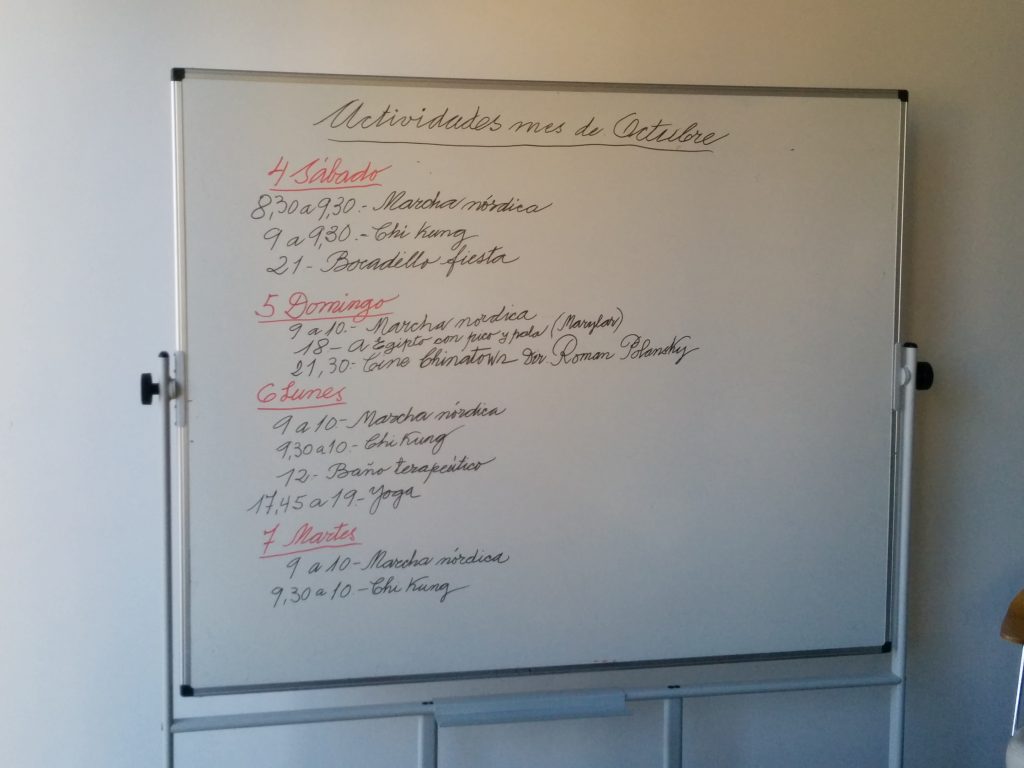 Actividades mes de Octubre
4 Sábado
8,30 a 9,30.- Marcha nórdica
9 a 9,30.- Chi Kung
21- Bocadillo fiesta
5 Domingo
9 a 10.- Marcha nordica
18- a Egipto con pico y pala (Marylar)
21,30- Cine Chinatown Dor. Roman Polansky
6 Lunes
9 a 10.- Marcha nórdica
9,30 a 10- Chi Kung
12- Baño terapéutico
17,45 a 19.- Yoga
7 Martes
9 a 10- Marcha nórdica
9,30 a 10.- Chi Kung